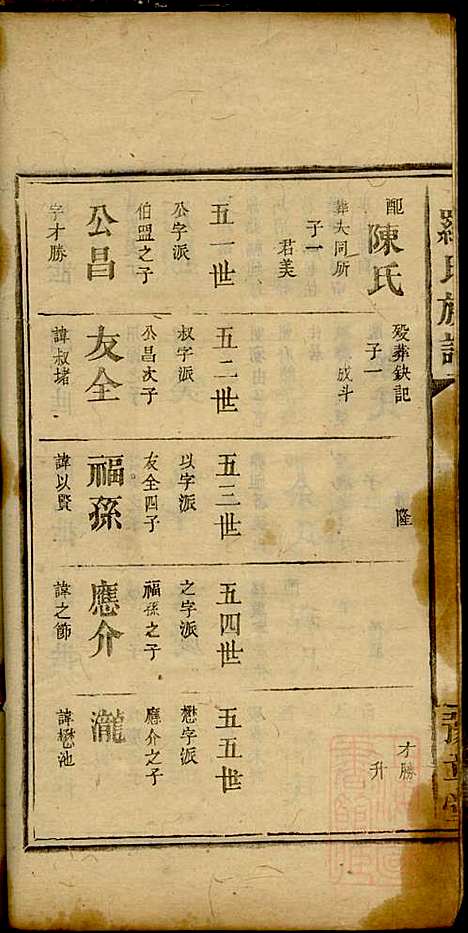 羅氏族譜
配陳氏
葬大同所
子一
君美
歿葬缺記
子一
成斗
隆
才勝
升
五一世
公字派
伯盟之子
公昌
字才勝
五二世
叔字派
公昌次子
友全
諱叔堵
五三世
以字派
友全四子
福孫
諱以賢
五四世
之字派
福孫之子
應介
諱之節
五五世
懋字派
應介之子
瀧
諱懋池